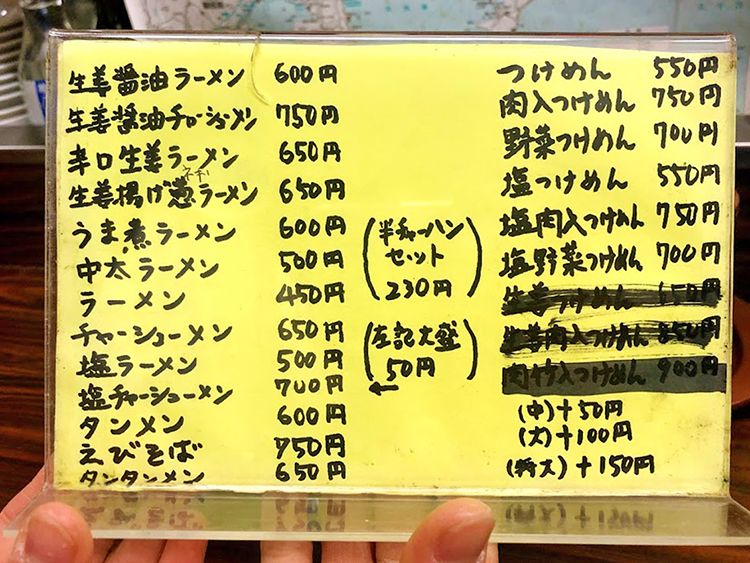 生姜醤油ラーメン 600円
生姜醤油チャーシューメン 750円
辛口生姜ラーメン 650円
ネギ
生姜揚げ葱ラーメン 650円
うま煮ラーメン 600円
中太ラーメン 500円
ラーメン 450円
チャーシューメン 650円
塩ラーメン 500円
塩チャーシューメン 700円
タンメン 600円
えびそば 750円
タンタンメン 650円
(半チャーハン
セット
230円)
(左記大盛
50円)
←
つけめん 550円
肉入つけめん 750円
野菜つけめん 700円
塩つけめん 550円
塩肉入つけめん 750円
塩野菜つけめん 700円
生姜つけめん 650円
生姜肉入つけめん 850円
肉竹入つけめん 900円
(中)+50円
(大)+100円
(特大)+150円